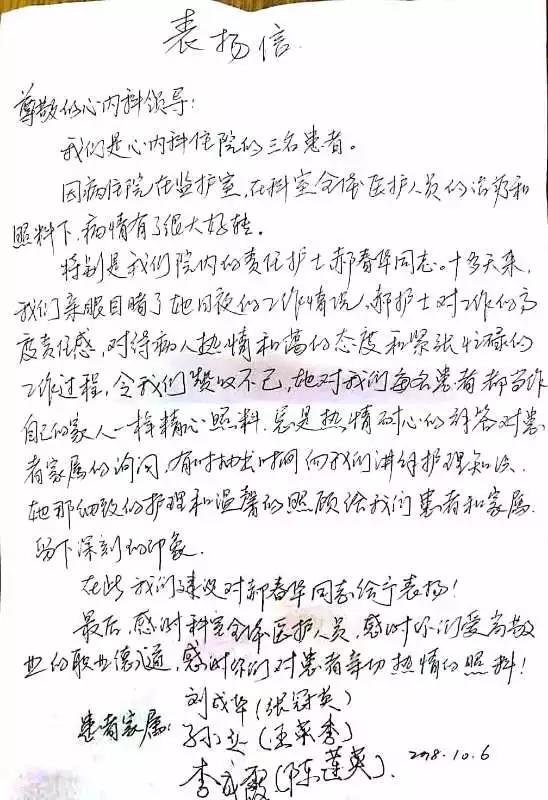 表扬信
尊敬的心内科领导:
我们是心内科住院的三名患者。
因病住院在监护室,在科室全体医护人员的治疗和
照料下,病情有了很大好转。
特别是我们院内的责任护士郝春华同志。十多天来,
我们亲眼目睹了她日夜的工作情况,郝护士对工作的高
度责任感,对待病人热情和蔼的态度和紧张忙碌的
工作过程,令我们赞叹不已,她对我们每名患者都当作
自己的家人一样精心照料,总是热情耐心的解答对患
者家属的询问,有时抽出时间向我们讲解护理知识.
她那细致的护理和温馨的照顾给我们患者和家属
留下深刻的印象.
在此,我们建议对郝春华同志给予表扬!
最后,感谢科室全体医护人员,感谢你们爱岗敬
业的职业道德,感谢你们对患者亲切热情的照料!
刘成华(张冠英)
患者家属: 孙 (王英季)
李成霞(陈莲英). 2018.10.6